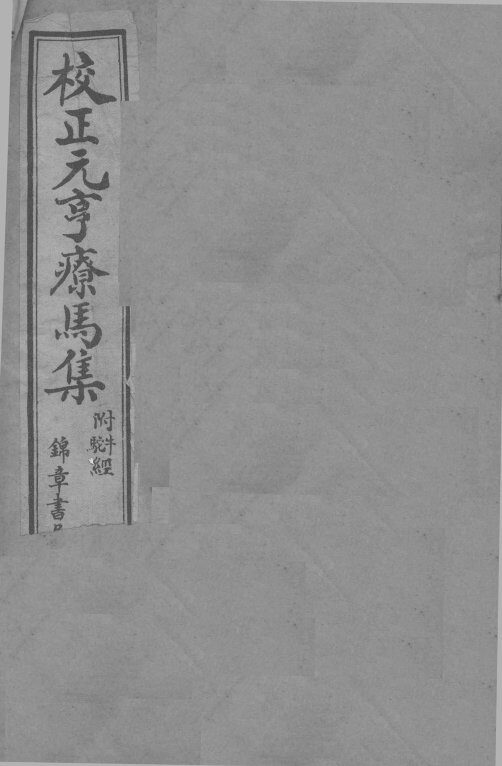 校正元亨療馬集
附牛駝經
錦章書局